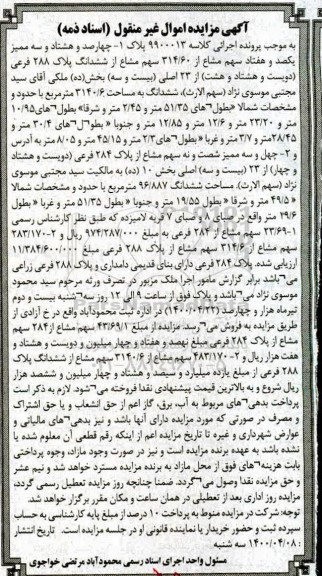 آگهی مزایده اموال غیر منقول (اسناد ذمه)
به موجب پرونده اجرائی کلاسه ۹۹۰۰۰۱۳ پلاک ۱- چهارصد و هشتاد و سه ممیز
یکصد و هفتاد سهم مشاع از ۳۱۴/۶۰ سهم مشاع از ششدانگ پلاک ۲۸۸ فرعی
(دویست و هشتاد و هشت) از ۲۳ اصلی (بیست و سه) بخش(ده) ملکی آقای سید
مجتبی موسوی نژاد (سهم الارث)، ششدانگ به مساحت ۳۱۴۰/۶ مترمربع با حدود و
مشخصات شمالا «بطول های ۵۱/۳۵ متر و ۲/۴۵ متر و شرقا» بطول های ۱۰/۹۵
متر و ۲۳/۲۰ متر و ۱۲/۶ متر و ۱۲/۸۵ متر و جنوبا « بطول های ۳۰/۴ متر و
۲۸/۴۵ متر و ۳/۷ متر و غربا « بطول های ۲/۳ متر و ۴۵/۱۵ متر و ۸/۰۵ متر به آدرس
و ۲- چهل و سه ممیز شصت و نه سهم مشاع از پلاک ۲۸۴ فرعی (دویست و هشتاد
و چهار) از ۲۳ (بیست و سه) اصلی بخش ۱۰ (ده) به مالکیت سید مجتبی موسوی
نژاد (سهم الارث)، مساحت ششدانگ ۹۶/۸۸۷ مترمربع با حدود و مشخصات شمالا
« ۴۹/۵ متر و شرقا « بطول ۱۹/۵۵ متر و جنوبا « بطول ۵۱/۳۵ متر و غربا « بطول
۲۹/۶ متر واقع در صبای ۸ و صبای ۷ قریه لامیزده که طبق نظر کارشناس رسمی
۱-۲۳/۶۹ سهم مشاع از ۲۸۴ فرعی به مبلغ ۹۷۴/۲۸۷/۰۰۰ ریال و ۲-۲۸۳/۱۷۰
سهم مشاع از ۳۱۴/۶ سهم مشاع از پلاک ۲۸۸ فرعی مبلغ ۱۱/۳۸۴/۶۰۰/۰۰۰
ارزیابی شده. پلاک ۲۸۴ فرعی دارای بنای قدیمی دامداری و پلاک ۲۸۸ فرعی زراعی
می باشد برابر گزارش مامور اجرا ملک مزبور در تصرف ورثه مرحوم سید محمود
موسوی نژاد می باشد و پلاک فوق از ساعت ۹ الی ۱۲ روز سه شنبه بیست و دوم
تیرماه هزار و چهارصد (۱۴۰۰/۰۴/۲۲) در اداره ثبت محمودآباد واقع در خ آزادی از
طریق مزایده به فروش می رسد. مزایده از مبلغ ۱-۴۳/۶۹ سهم مشاع از ۲۸۴ سهم
مشاع از پلاک ۲۸۴ فرعی مبلغ نهصد و هفتاد و چهار میلیون و دویست و هشتاد و
هفت هزار ریال و ۲-۴۸۳/۱۷۰ سهم مشاع از ۳۱۴۰/۶ سهم مشاع از ششدانگ پلاک
۲۸۸ فرعی از مبلغ یازده میلیارد و سیصد و هشتاد و چهار میلیون و ششصد هزار
ریال شروع و به بالاترین قیمت پیشنهادی نقدا فروخته می شود. لازم به ذکر است
پرداخت بدهی های مربوط به آب، برق، گاز اعم از حق انشعاب و یا حق اشتراک
و مصرف در صورتی که مورد مزایده دارای آنها باشد و نیز بدهی های مالیاتی و
عوارض شهرداری و غیره تا تاریخ مزایده اعم از اینکه رقم قطعی آن معلوم شده یا
نشده باشد به عهده برنده مزایده است و نیز در صورت وجود مازاد، وجوه پرداختی
بابت هزینه های فوق از محل مازاد به برنده مزایده مسترد خواهد شد و نیم عشر
و حق مزایده نقدا وصول می گردد. ضمنا چنانچه روز مزایده تعطیل رسمی گردد،
مزایده روز اداری بعد از تعطیلی در همان ساعت و مکان مقرر برگزار خواهد شد.
توجه: شرکت در مزایده منوط به پرداخت ۱۰ درصد از مبلغ پایه کارشناسی به حساب
سپرده ثبت و حضور خریدار یا نماینده قانونی او در جلسه مزایده است. تاریخ انتشار
: ۱۴۰۰/۰۴/۰۸ سه شنبه
مسئول واحد اجرای اسناد رسمی محمودآباد مرتضی خواجوی